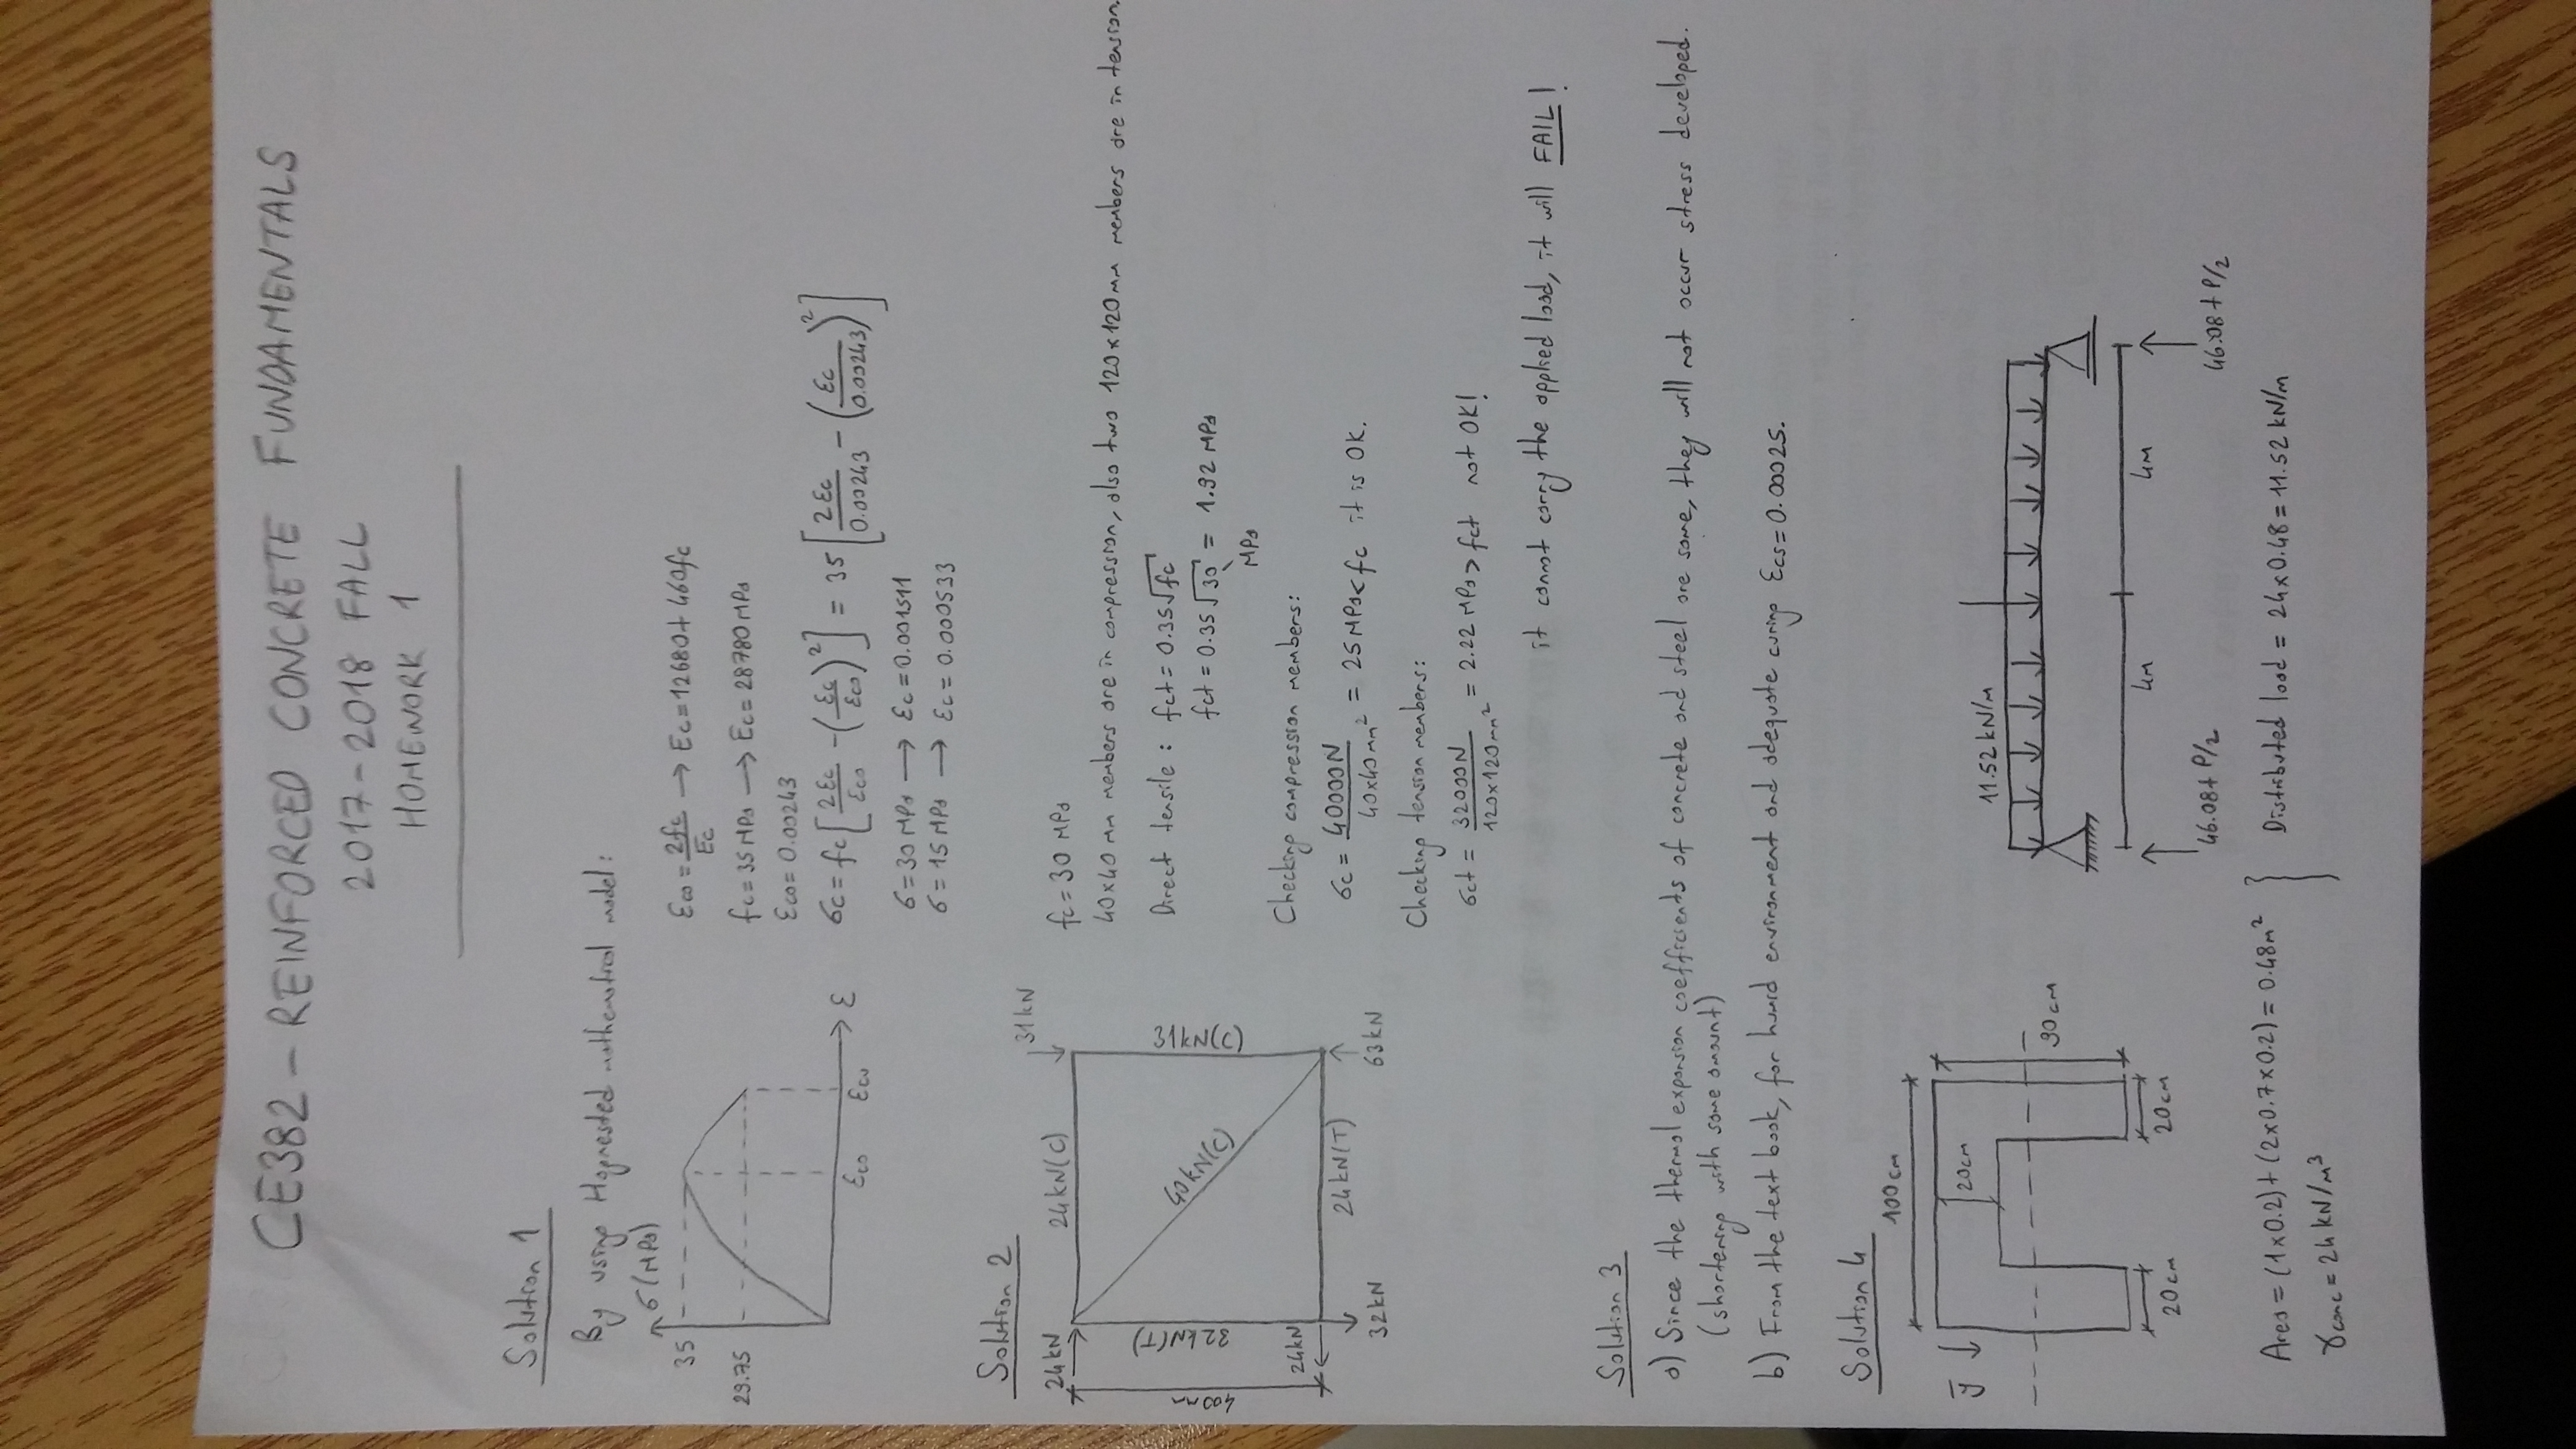 CE382 - REINFORCED CONCRETE FUNDAMENTALS
2017-2018 FALL
HOMEWORK 1
Solution 1
By using Hognested mathematical model:
σ(MPa)
35
29.75
εco
εcu
ε
εco = 2fc/Ec → Ec = 12680 + 460fc
fc = 35 MPa → Ec = 28780 MPa
εco = 0.00243
σc = fc [2εc/εco - (εc/εco)²] = 35 [2εc/0.00243 - (εc/0.00243)²]
σ = 30 MPa → εc = 0.001511
σ = 15 MPa → εc = 0.000533
Solution 2
31 kN
24 kN
24 kN(C)
400mm
32 kN(T)
40 kN(C)
31 kN(C)
24 kN
24 kN(T)
32 kN
63 kN
fc = 30 MPa
40x40 mm members are in compression, also two 120x120 mm members are in tension.
Direct tensile: fct = 0.35√fc
fct = 0.35√30 = 1.92 MPa
MPa
Checking compression members:
σc = 40000N / 40x40mm² = 25 MPa < fc it is OK.
Checking tension members:
σct = 32000N / 120x120mm² = 2.22 MPa > fct not OK!
it cannot carry the applied load, it will FAIL!
Solution 3
a) Since the thermal expansion coefficients of concrete and steel are same, they will not occur stress developed.
(shortening with same amount)
b) From the text book, for humid environment and adequate curing εcs = 0.00025.
Solution 4
100 cm
ȳ
20cm
90 cm
20 cm
20 cm
11.52 kN/m
4m
4m
46.08 + P/2
46.08 + P/2
Area = (1x0.2) + (2x0.7x0.2) = 0.48m²
γconc = 24 kN/m³
Distributed load = 24x0.48 = 11.52 kN/m